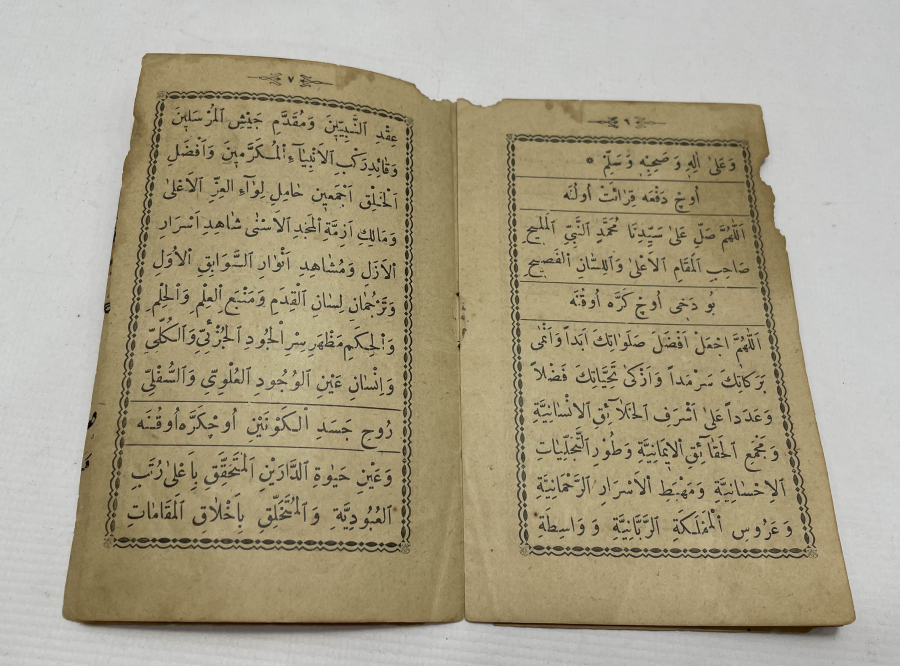 ٦
وَعَلٰى اٰلِهٖ وَصَحْبِهٖ وَسَلِّمْ *
اُوچ دَفْعَه قِرَائَتْ اُولُنَه
اَللّٰهُمَّ صَلِّ عَلٰى سَيِّدِنَا مُحَمَّدٍ النَّبِىِّ الْمَلِيحِ
صَاحِبِ الْمَقَامِ الْاَعْلٰى وَاللِّسَانِ الْفَصِيحِ
بُو دَخِى اُوچ كَرَّه اُوقُنَه
اَللّٰهُمَّ اجْعَلْ اَفْضَلَ صَلَوَاتِكَ اَبَداً وَاَنْمٰى
بَرَكَاتِكَ سَرْمَداً وَاَزْكٰى تَحِيَّاتِكَ فَضْلاً
وَعَدَداً عَلٰى اَشْرَفِ الْخَلَائِقِ الْاِنْسَانِيَّةِ
وَمَجْمَعِ الْحَقَائِقِ الْاِيمَانِيَّةِ وَطُورِ التَّجَلِّيَاتِ
الْاِحْسَانِيَّةِ وَمَهْبِطِ الْاَسْرَارِ الرَّحْمَانِيَّةِ
وَعَرُوسِ الْمَمْلَكَةِ الرَّبَّانِيَّةِ وَوَاسِطَةِ
٧
عِقْدِ النَّبِيِّينَ وَمُقَدَّمِ جَيْشِ الْمُرْسَلِينَ
وَقَائِدِ رَكْبِ الْاَنْبِيَاءِ الْمُكَرَّمِينَ وَاَفْضَلِ
الْخَلْقِ اَجْمَعِينَ حَامِلِ لِوَاءِ الْعِزِّ الْاَعْلٰى
وَمَالِكِ اَزِمَّةِ الْمَجْدِ الْاَسْنٰى شَاهِدِ اَسْرَارِ
الْاَزَلِ وَمُشَاهِدِ اَنْوَارِ السَّوَابِقِ الْاُوَلِ
وَتَرْجُمَانِ لِسَانِ الْقِدَمِ وَمَنْبَعِ الْعِلْمِ وَالْحِلْمِ
وَالْحِكَمِ مَظْهَرِ سِرِّ الْجُودِ الْجُزْئِىِّ وَالْكُلِّىِّ
وَاِنْسَانِ عَيْنِ الْوُجُودِ الْعُلْوِىِّ وَالسُّفْلِىِّ
رُوحِ جَسَدِ الْكَوْنَيْنِ اُوچكَرَّه اُوقُنَه
وَعَيْنِ حَيٰوةِ الدَّارَيْنِ الْمُتَحَقِّقِ بِاَعْلٰى رُتَبِ
الْعُبُودِيَّةِ وَالْمُتَخَلِّقِ بِاَخْلَاقِ الْمَقَامَاتِ